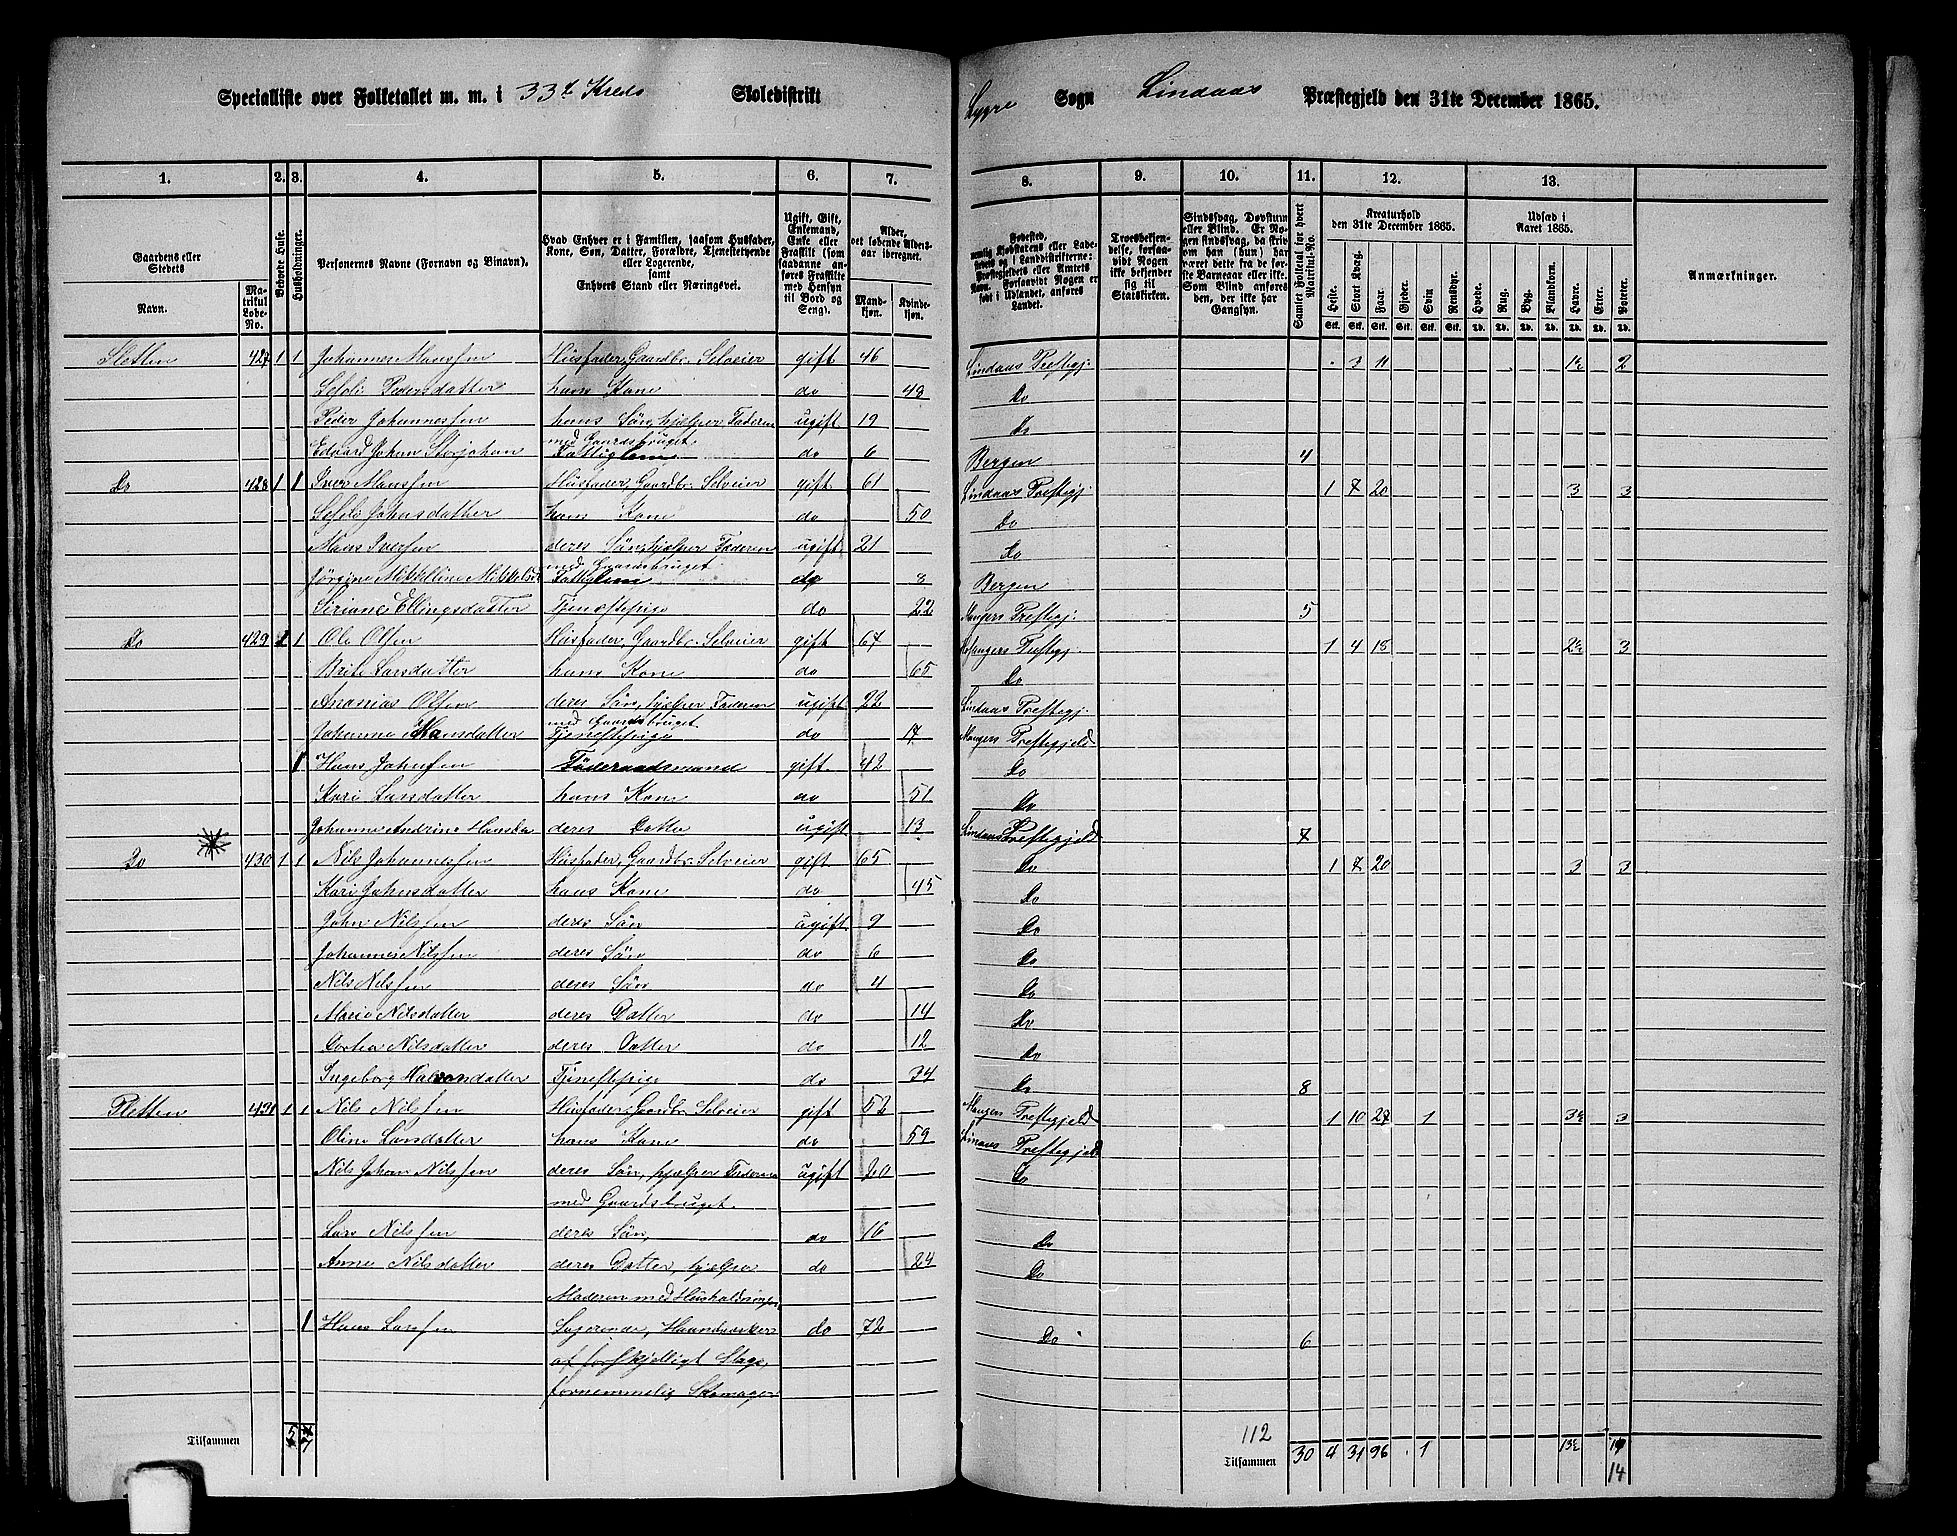 Specialliste over Folketallet m. m. i 33te Kreds Skoledistrikt Lygre Sogn Lindaas Præstegjeld den 31te December 1865.
1. 2. 3. 4. 5. 6. 7. 8. 9. 10. 11. 12. 13.
Gaardens eller Stedets Navn. Matrikul Løbe-No. Bebyede Huse. Husholdninger. Personernes Navne (Fornavn og Binavn). Hvad Enhver er i Familien, saasom Husfader, Kone, Søn, Datter, Forældre, Tjenestetyende eller Logerende, samt Enhvers Stand eller Næringsvei. Ugift, Gift, Enkemand, Enke eller Fraskilt (som saadanne anføres Fraskilte med Hensyn til Bord og Seng). Alder, det løbende Aldersaar iberegnet. Mandkjøn. Kvindekjøn.
Fødested, Troesbekjendelse, forsaavidt Nogen ikke bekjender sig til Statskirken. Sindssvag, Døvstum eller Blind. Samlet Folketal for hvert Matrikul-No. Kreaturhold den 31te December 1865. Heste. Stort Kvæg. Faar. Gjeder. Svin Rensdyr. Udsæd i Aaret 1865. Hvede. Rug. Byg. Blandkorn. Havre. Erter. Poteter. Anmærkninger.
Sletten 427 1 1 Johannes Monssen Husfader, Gaardbr. Selveier gift 46 Lindaas Prestegj. 3 11 1½ 2
Seselie Pedersdatter hans Kone do 48 Do
Peder Johannessen hans Søn, hjelper Faderen ugift 19 Do
med Gaardsbruget.
Edvard Johan Storjohan Fattiglem do 6 Bergen 4
Do 428 1 1 Iver Monssen Husfader, Gaardbr. Selveier gift 61 Lindaas Prestegj. 1 7 20 3 3
Seseli Johnsdatter hans Kone do 50 Do
Mons Iversen deres Søn, hjelper Faderen ugift 21 Do
med Gaardsbruget.
Jørgine Mikkeline Mikkelsd Fattiglem do 8 Bergen
Siriane Ellingsdatter Tjenestepige do 22 Mangers Prestegj. 5
Do 429 1 1 Ole Olsen Husfader, Gaardbr. Selveier gift 67 Prestegj. 1 4 18 2½ 3
Brite Larsdatter hans Kone do 65 Do
Ananias Olsen deres Søn, hjelper Faderen ugift 22 Lindaas Prestegj.
med Gaardsbruget
Johanne Hansdatter Tjenestepige do 17 Mangers Prestegjeld
1 Hans Johnsen Føderaadsmand gift 42 Do
Kari Larsdatter hans Kone do 51 Do
Johanne Andrine Hansda deres Datter ugift 13 Lindaas Prestegjeld 7
Do 430 1 1 Nils Johannessen Husfader, Gaardbr. Selveier gift 65 Do 1 7 20 3 3
Kari Johnsdatter hans Kone do 45 Do
John Nilssen deres Søn ugift 9 Do
Johannes Nilssen deres Søn do 6 Do
Nils Nilssen deres Søn do 4 Do
Marie Nilsdatter deres Datter do 14 Do
Dortea Nilsdatter deres Datter do 12 Do
Ingeborg Halvorsdatter Tjenestepige do 34 Do 8
Sletten 431 1 1 Nils Nilssen Husfader, Gaardbr. Selveier gift 52 Mangers Prestegjeld 1 10 27 1 3½ 3
Oline Larsdatter hans Kone do 59 Lindaas Prestegjeld
Nils Johan Nilssen deres Søn, hjelper Faderen ugift 20 Do
med Gaardsbruget.
Lars Nilssen deres Søn, do 16 Do
Anne Nilsdatter deres Datter, hjelper do 24 Do
Moderen med Husholdningen
1 Hans Larssen Logerende, Haandverker do 72 Do 6
af forskjelligt Slags,
fornemmelig Skomager
Tilsammen 5 7
112
Tilsammen 30 4 31 96 . 1 13½
14